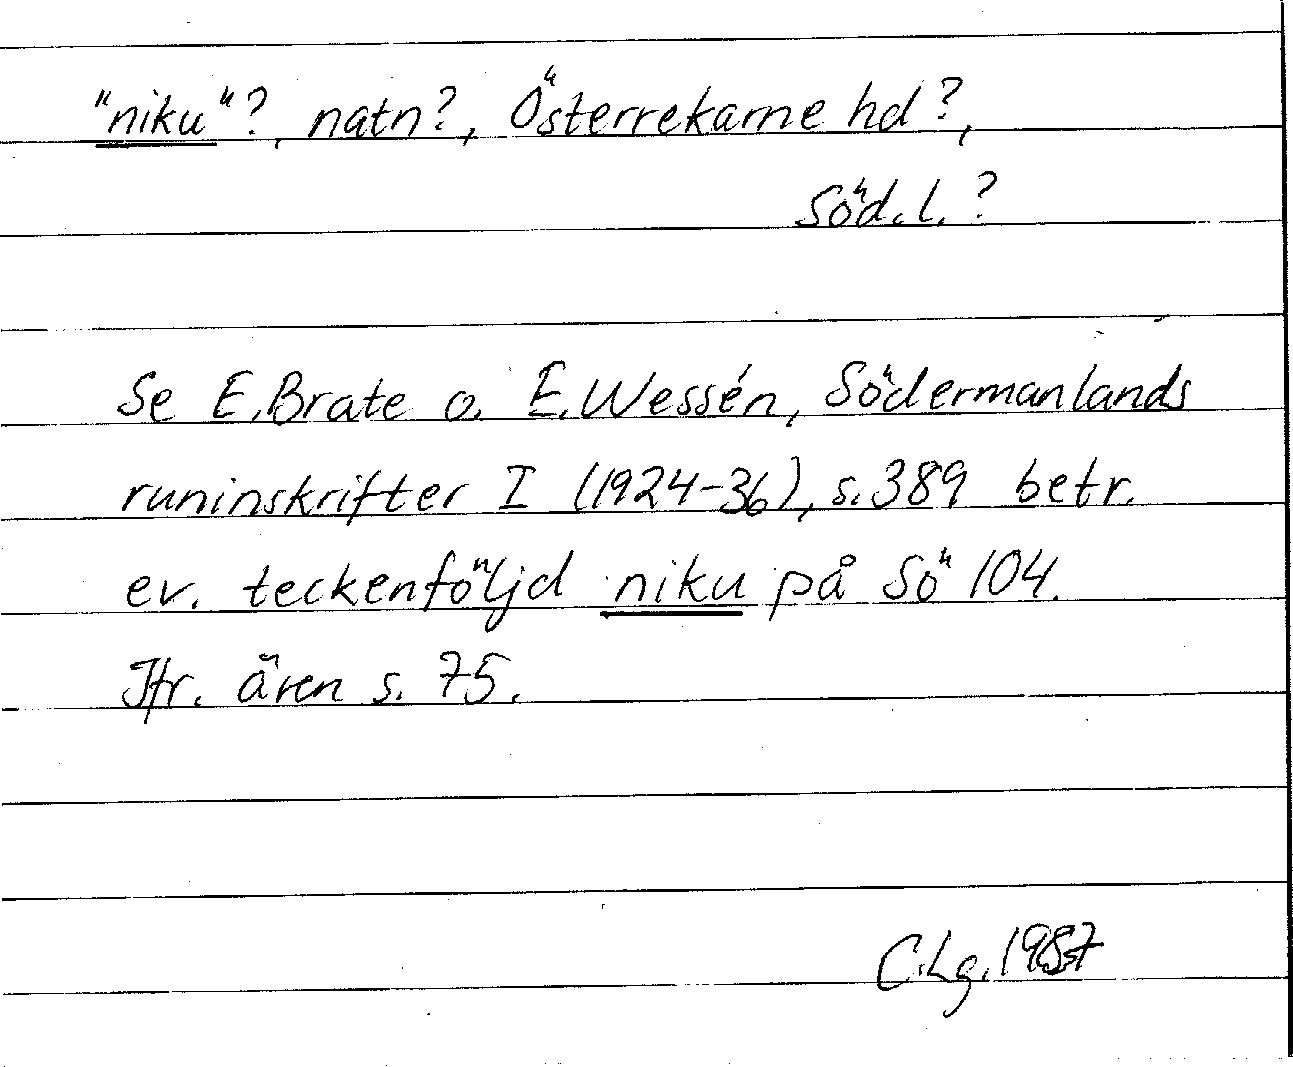 "niku"?, natn?, Österrekarne hd?,
Söd.l.?
Se E.Brate o. E.Wessén, Södermanlands
runinskrifter I (1924-36), s.389 betr.
ev. teckenföljd niku på Sö 104.
Jfr. även s. 75.
C.Lg.1987